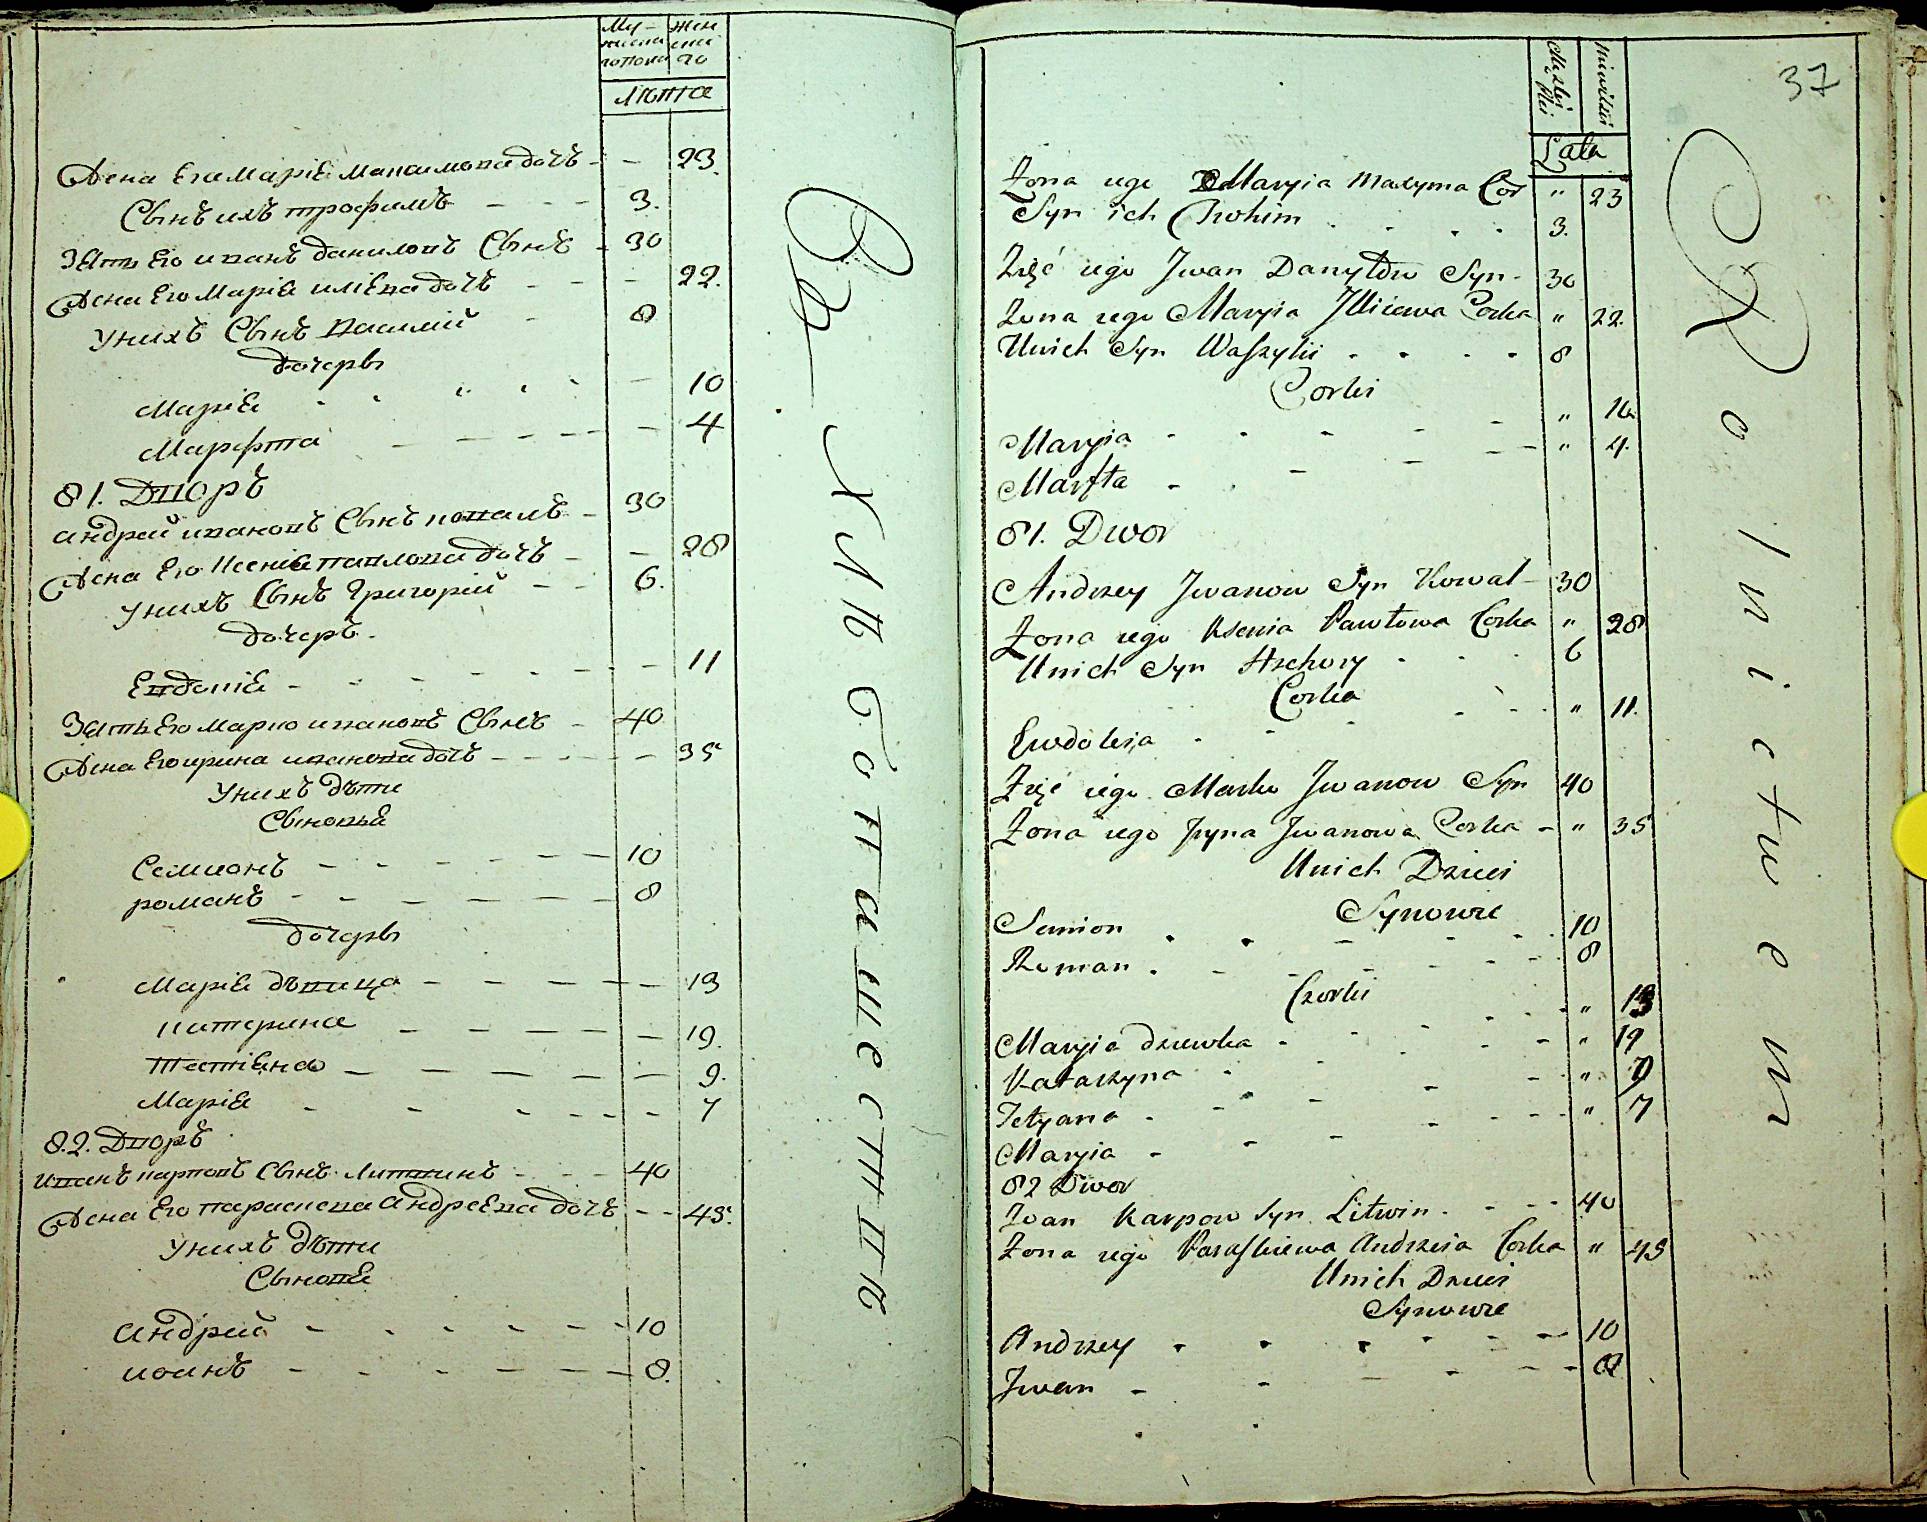 Му-
жеска
го пола
Жен
ска
го
Люта
Жена Его Маріѣ Максимова дочь - - 23.
Сынъ ихъ трофимъ - - - 3.
Зять Его иванъ даниловъ Сынъ - 30
Жена Его Маріѣ илієва дочь - - - 22.
Унихъ Сынъ василій - 8
дочеры
Маріѣ - 10
Марфта - - - - - - 4
81. Дворъ
андрей ивановъ Сынъ коваль - 30
Жена Его Ксеніѣ павлова дочь - - 28
Унихъ Сынъ Григорій - - 6.
дочеръ.
Евдокіѣ - - - - - - - 11
Зять Его Марко ивановъ Сынъ - 40
Жена Его ирина иванова дочь - - - - - - 35
Унихъ дѣти
Сыновья
Семионъ - - - - - - 10
романъ - - - - - - 8
дочеры
Маріѣ дѣвица - - - - - - 13
катерина - - - - - - 19.
Тетіяна - - - - - - 9.
Маріѣ - - - - - - 7
82. Дворъ
иванъ карповъ Сынъ Литвинъ - - - 40
Жена Его параскева андреєва дочь - - 45.
Унихъ дѣти
Сыновѣ
андрей - - - - - - 10
иоанъ - - - - - - 8.
Са хлѣбопашествѣ
37
Męzkiey Płci
Niewieśći
Lata
Zona iego Maryia Maxyma Cor " 23
Syn ich Trohim . . . . 3.
Zięć iego Jwan Danyłow Syn - 30
Zona iego Maryia Jlliiewa Corka " 22.
Unich Syn Waszylii . . . . 8
Corki
Maryia - - - - - " 10
Marfta - - - - - " 4.
81. Dwor
Andrzey Jwanow Syn Kowal - 30
Zona iego Ksenia Pawłowa Corka " 28
Unich Syn Hrehory - - - 6
Corka
Ewdokia - - - - - " 11.
Zięć iego Marko Jwanow Syn 40
Zona iego Jryna Jwanowa Corka - " 35
Unich Dzieci
Synowie
Semion . . - - - . 10
Roman . - - - - - 8
Czorki
Maryia dziewka - - - - - " 13
Katarzyna - - - - - " 19
Tetyana - - - - - " 9
Maryia - - - - - " 7
82 Dwor
Jwan Karpow Syn Litwin - - - 40
Zona iego Paraskiewa Andrzeia Corka " 45
Unich Dzieci
Synowie
Andrzey . . . . - - 10
Jwan - - - - - - 8
Rolnictwem